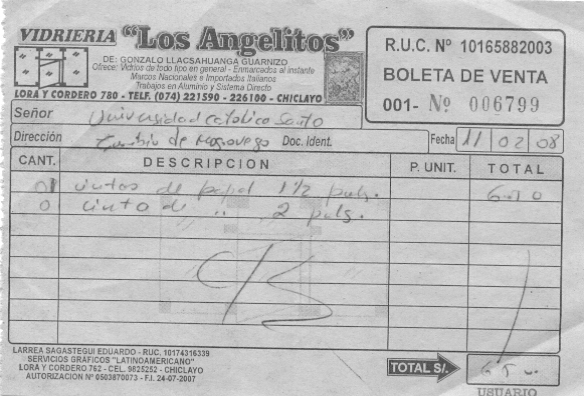 VIDRIERIA "Los Angelitos"
DE: GONZALO LLACSAHUANGA GUARNIZO
Ofrece: Vidrios de todo tipo en general - Enmarcados al instante
Marcos Nacionales e Importados Italianos
Trabajos en Aluminio y Sistema Directo
LORA Y CORDERO 780 - TELF. (074) 221590 - 226100 - CHICLAYO
R.U.C. Nº 10165882003
BOLETA DE VENTA
001- Nº 006799
Señor Universidad Catolica Santo
Dirección Toribio de Mogrovejo Doc. Ident. Fecha 11 02 08
CANT. DESCRIPCION P. UNIT. TOTAL
01 cintas de papel 1 1/2 pulg.
0 cinta de " 2 pulg.
LARREA SAGASTEGUI EDUARDO - RUC. 10174316339
SERVICIOS GRÁFICOS "LATINOAMERICANO"
LORA Y CORDERO 762 - CEL. 9825252 - CHICLAYO
AUTORIZACIÓN Nº 0503870073 - F.I. 24-07-2007
TOTAL S/.
USUARIO